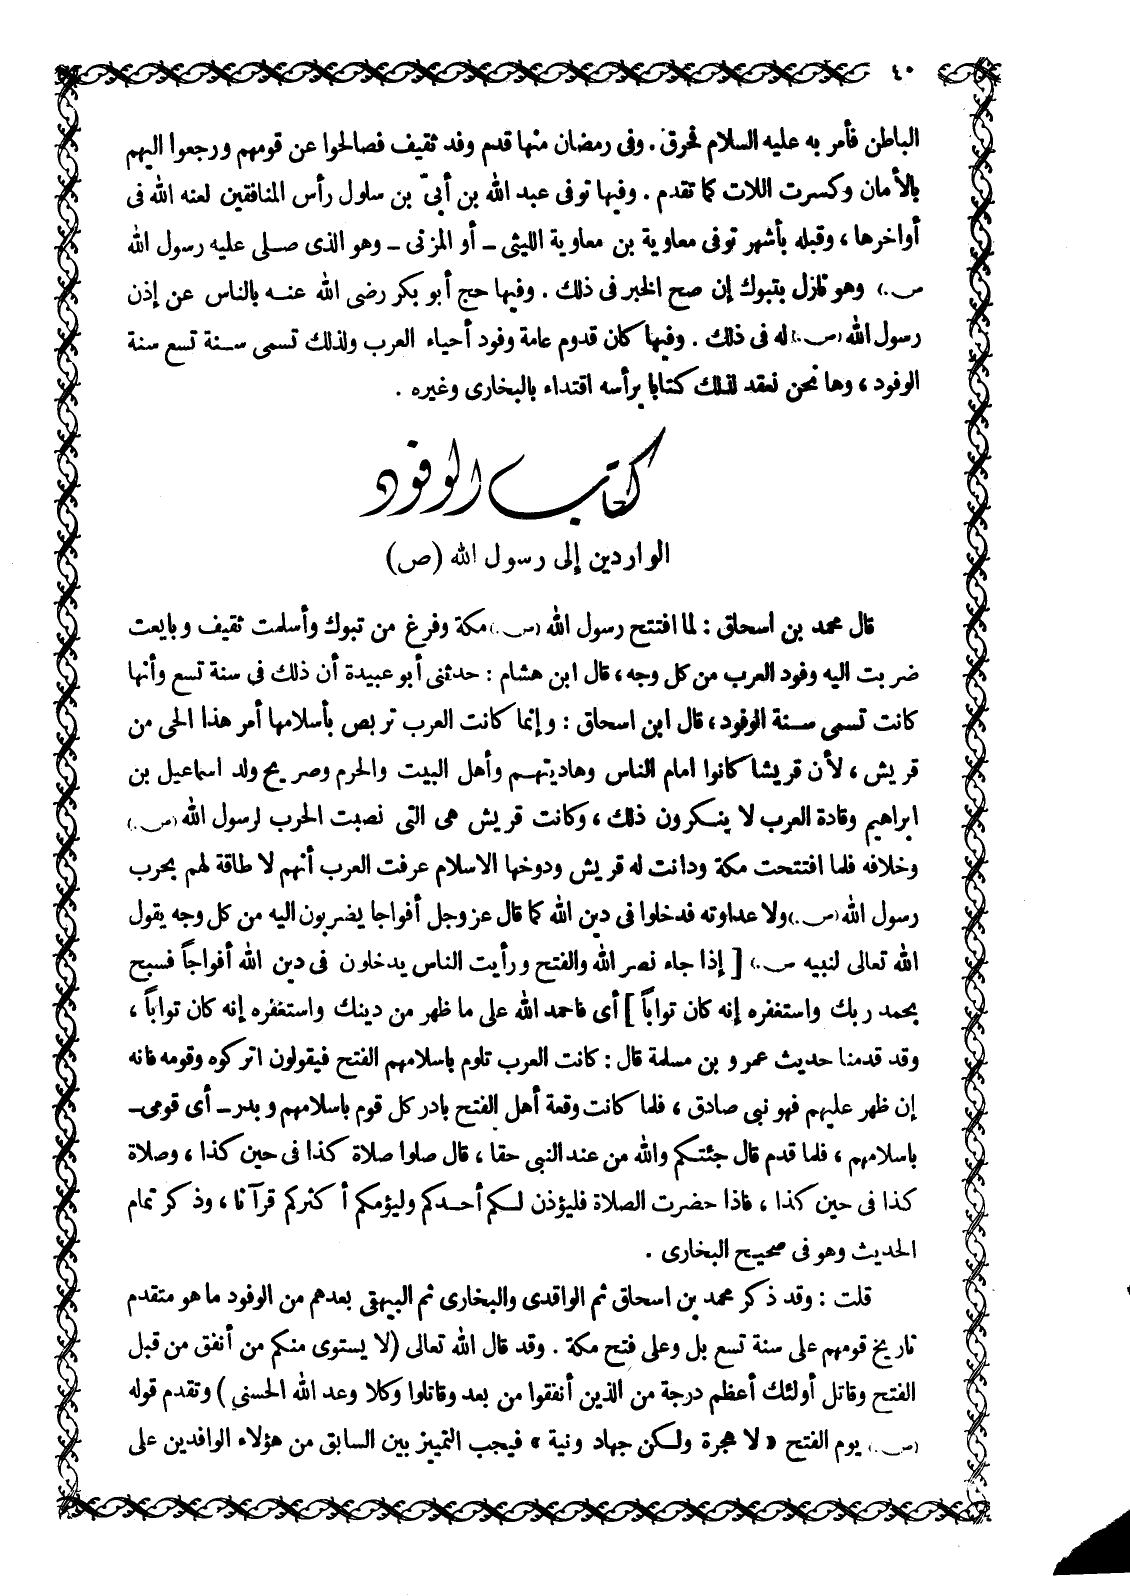 ٤٠
الباطن فأمر به عليه السلام فحرق . وفى رمضان منها قدم وفد ثقيف فصالحوا عن قومهم ورجعوا اليهم
بالأمان وكسرت اللات كما تقدم . وفيها توفى عبد الله بن أبىّ بن سلول رأس المنافقين لعنه الله فى
أواخرها ، وقبله بأشهر توفى معاوية بن معاوية الليثى ــ أو المزنى ــ وهو الذى صلى عليه رسول الله
ص.) وهو نازل بتبوك إن صح الخبر فى ذلك . وفيها حج أبو بكر رضى الله عنه بالناس عن إذن
رسول الله (ص.) له فى ذلك . وفيها كان قدوم عامة وفود أحياء العرب ولذلك تسمى سنة تسع سنة
الوفود ، وها نحن نعقد لذلك كتابا برأسه اقتداء بالبخارى وغيره .
كتاب الوفود
الواردين إلى رسول الله (ص)
قال محمد بن اسحاق : لما افتتح رسول الله (ص.) مكة وفرغ من تبوك وأسلمت ثقيف وبايعت
ضربت اليه وفود العرب من كل وجه ، قال ابن هشام : حدثنى أبو عبيدة أن ذلك فى سنة تسع وأنها
كانت تسمى سنة الوفود ، قال ابن اسحاق : وإنما كانت العرب تربص بأسلامها أمر هذا الحى من
قريش ، لأن قريشا كانوا امام الناس وهاديتهم وأهل البيت والحرم وصريح ولد اسماعيل بن
ابراهيم وقادة العرب لا ينكرون ذلك ، وكانت قريش هى التى نصبت الحرب لرسول الله (ص.)
وخلافه فلما افتتحت مكة ودانت له قريش ودوخها الاسلام عرفت العرب أنهم لا طاقة لهم بحرب
رسول الله (ص.) ولا عداوته فدخلوا فى دين الله كما قال عز وجل أفواجا يضربون اليه من كل وجه يقول
الله تعالى لنبيه ص.) [ إذا جاء نصر الله والفتح ورأيت الناس يدخلون فى دين الله أفواجاً فسبح
بحمد ربك واستغفره إنه كان تواباً ] أى فاحمد الله على ما ظهر من دينك واستغفره إنه كان تواباً ،
وقد قدمنا حديث عمرو بن مسلمة قال : كانت العرب تلوم باسلامهم الفتح فيقولون اتركوه وقومه فانه
إن ظهر عليهم فهو نبى صادق ، فلما كانت وقعة أهل الفتح بادر كل قوم باسلامهم وبدر ــ أى قومى ــ
باسلامهم ، فلما قدم قال جئتكم والله من عند النبى حقا ، قال صلوا صلاة كذا فى حين كذا ، وصلاة
كذا فى حين كذا ، فاذا حضرت الصلاة فليؤذن لكم أحدكم وليؤمكم أكثركم قرآنا ، وذكر تمام
الحديث وهو فى صحيح البخارى .
قلت : وقد ذكر محمد بن اسحاق ثم الواقدى والبخارى ثم البيهقى بعدهم من الوفود ما هو متقدم
تاريخ قومهم على سنة تسع بل وعلى فتح مكة . وقد قال الله تعالى (لا يستوى منكم من أنفق من قبل
الفتح وقاتل أولئك أعظم درجة من الذين أنفقوا من بعد وقاتلوا وكلا وعد الله الحسنى ) وتقدم قوله
(ص.) يوم الفتح « لا هجرة ولكن جهاد ونية » فيجب التمييز بين السابق من هؤلاء الوافدين على